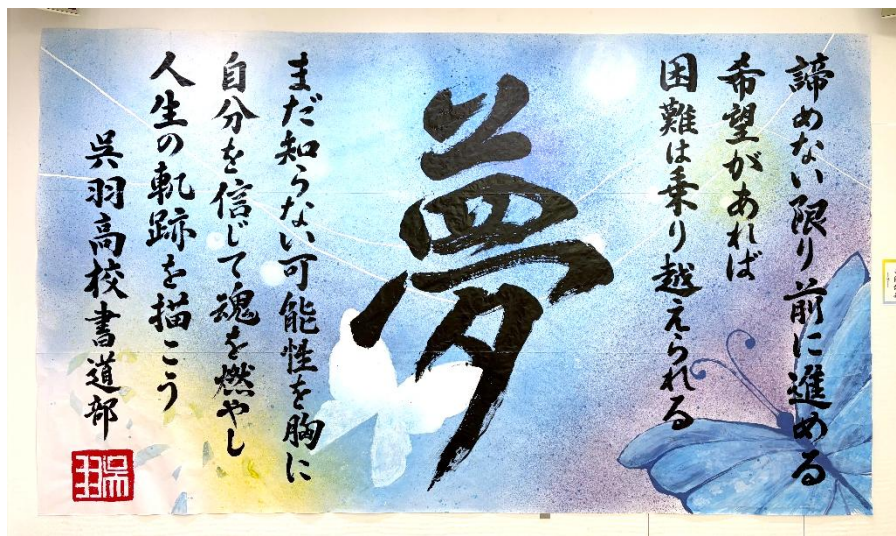 諦めない限り前に進める
希望があれば
困難は乗り越えられる
夢
まだ知らない可能性を胸に
自分を信じて魂を燃やし
人生の軌跡を描こう
呉羽高校書道部
呉羽